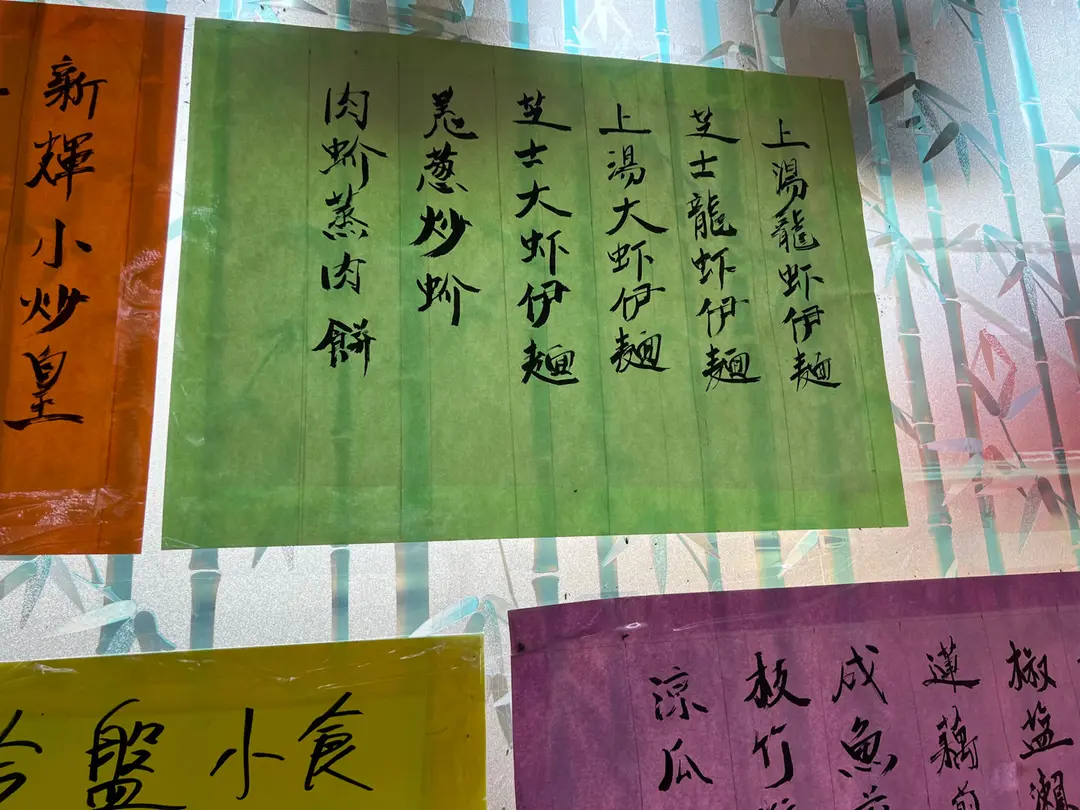 上湯龍虾伊麵
芝士龍虾伊麵
上湯大虾伊麵
芝士大虾伊麵
羌葱炒蚧
肉蚧蒸肉餅
新輝小炒皇
盤小食
椒盐瀨
蓮藕
咸魚
枝竹
涼瓜